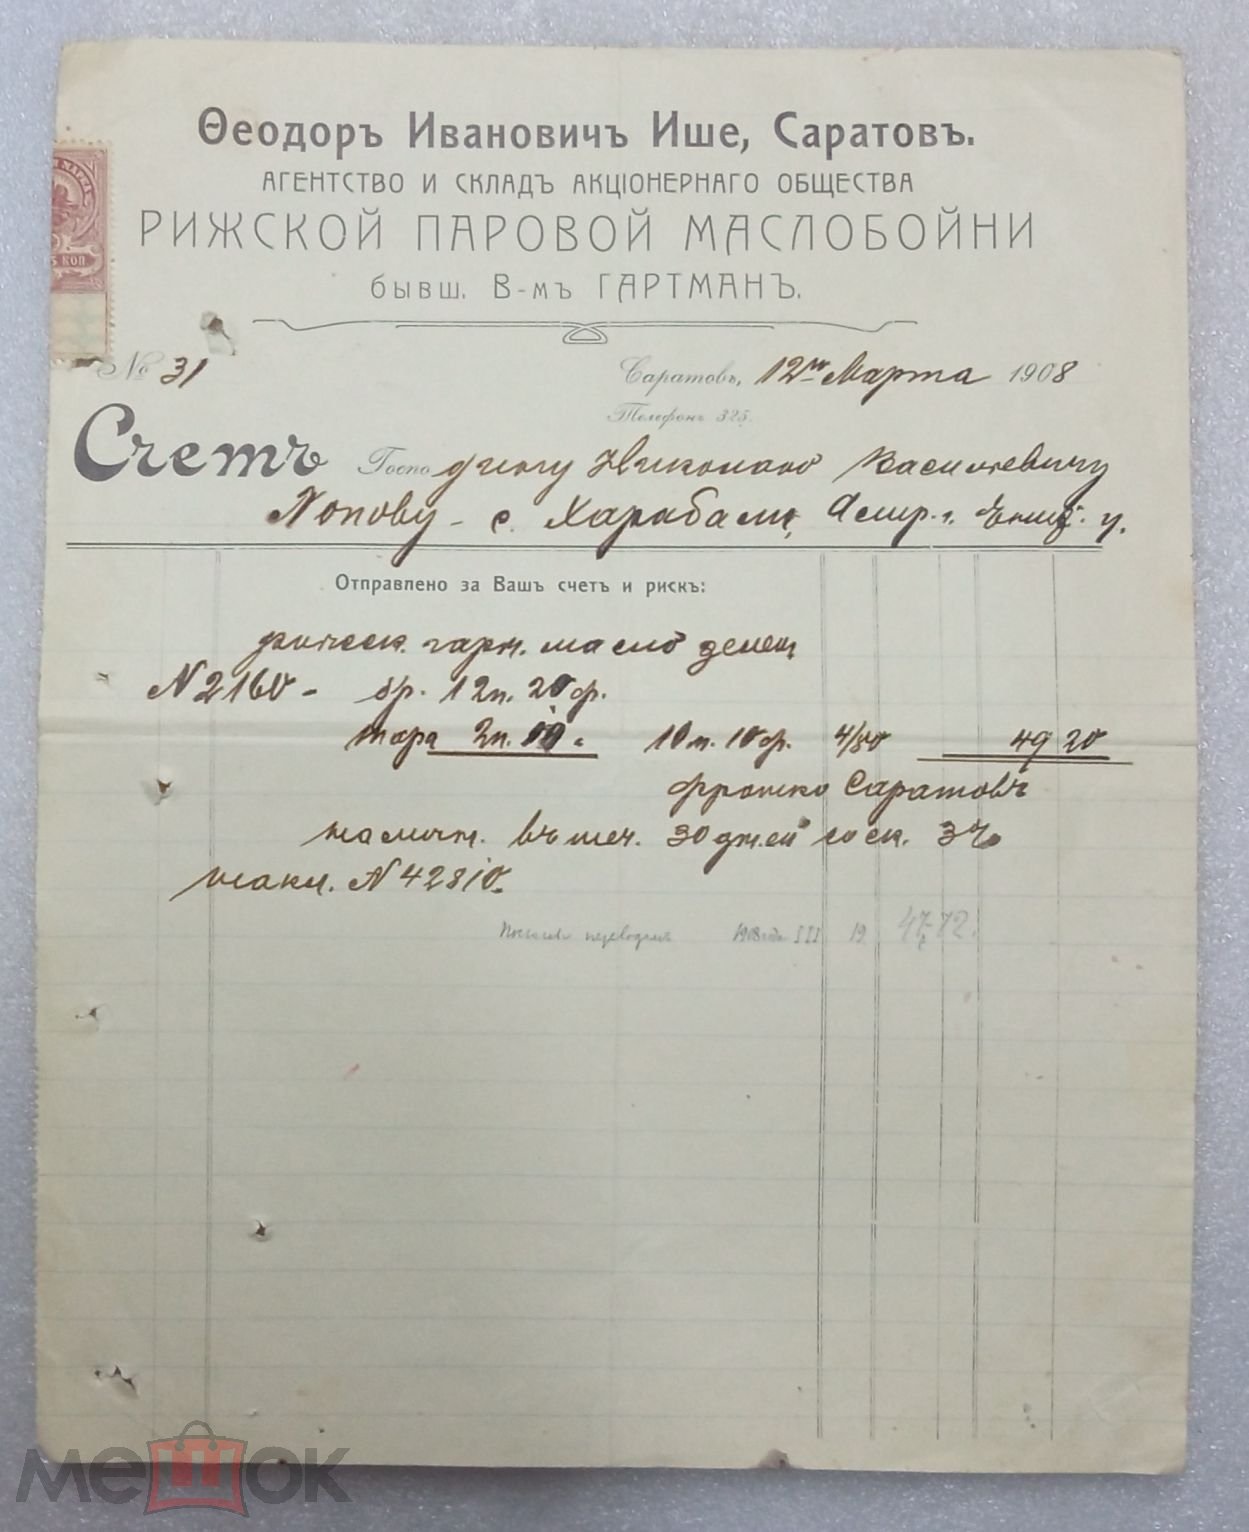 Ѳеодоръ Ивановичъ Ише, Саратовъ.
АГЕНТСТВО И СКЛАДЪ АКЦІОНЕРНАГО ОБЩЕСТВА
РИЖСКОЙ ПАРОВОЙ МАСЛОБОЙНИ
бывш. В-мъ ГАРТМАНЪ.
КОП
№ 31
Саратовъ, 12го Марта 1908
Телефонъ 325.
Счетъ Господину Николаю Васильевичу
Попову - с. Харабали, Астр. г. у.
Отправлено за Вашъ счетъ и рискъ:
гарн. масло
N 2160 - бр. 12п. 20ф.
тара 2п. 10 п. 10 ф. 4/80 49 20
франко Саратовъ
наличн. въ теч. 30 дней со ск. 3%
накл. N 42810.
переводомъ III 19 47,72.
мешок